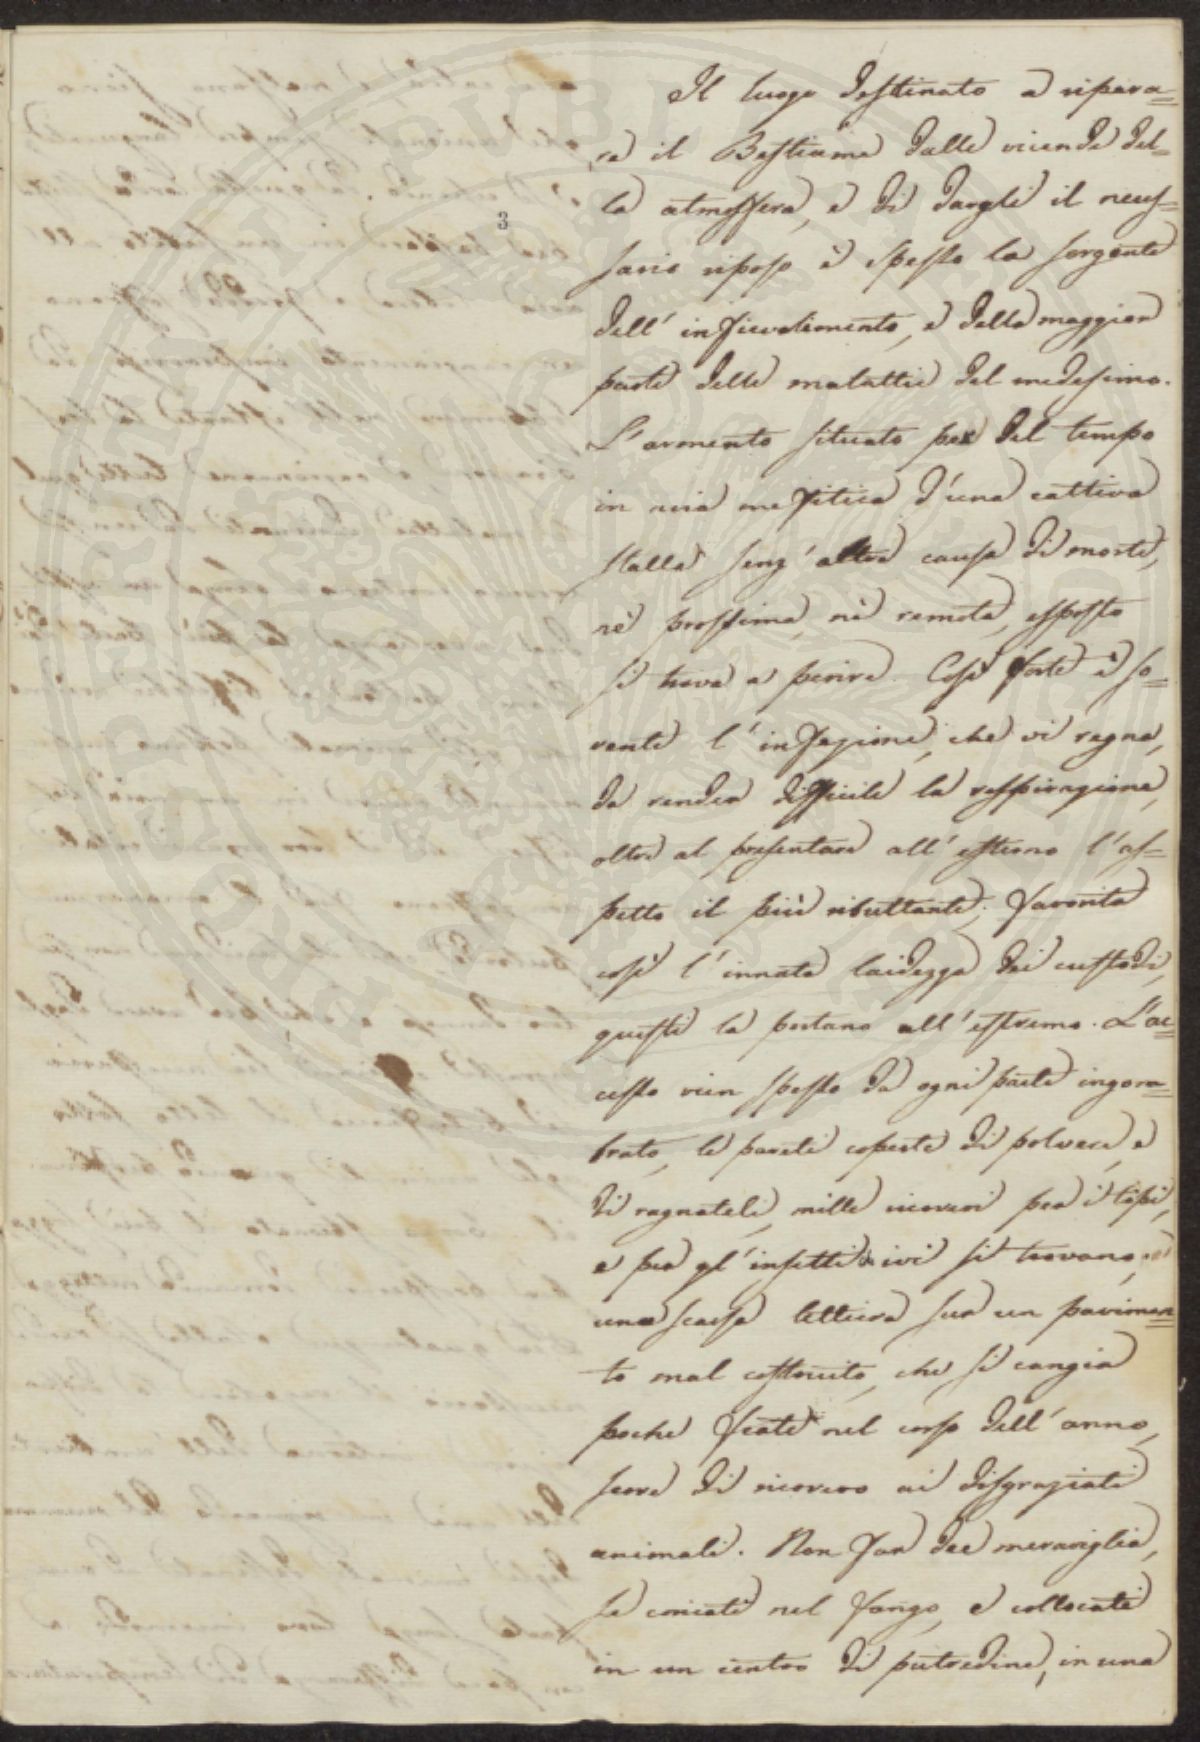 3
Il luogo destinato a ripara=
re il Bestiame dalle vicende del=
la atmosfera, e di dargli il neces=
sario riposo è spesso la sorgente
dell' infievolimento, e della maggior
parte delle malattie del medesimo.
L'armento situato per del tempo
in aria mefitica d'una cattiva
stalla senz' altra causa di morte,
nè prossima, nè remota, esposto
si trova a perire. Così forte è so=
vente l' infezione, che vi regna,
da render difficile la respirazione,
oltre al presentare all' esterno l'as=
petto il più ributtante; favorita
così l' innata laidezza dei custodi,
questi la portano all' estremo. L'ac=
cesso vien spesso da ogni parte ingom=
brato, le pareti coperte di polvere, e
di ragnateli, mille ricoveri per i topi,
e per gl' insetti ivi si trovano,
una scarsa lettiera sur un pavimen=
to mal costruito, che si cangia
poche fiate nel corso dell' anno,
serve di ricovero ai disgraziati
animali. Non far dee meraviglia,
se coricati nel fango, e collocati
in un centro di putredine, in una